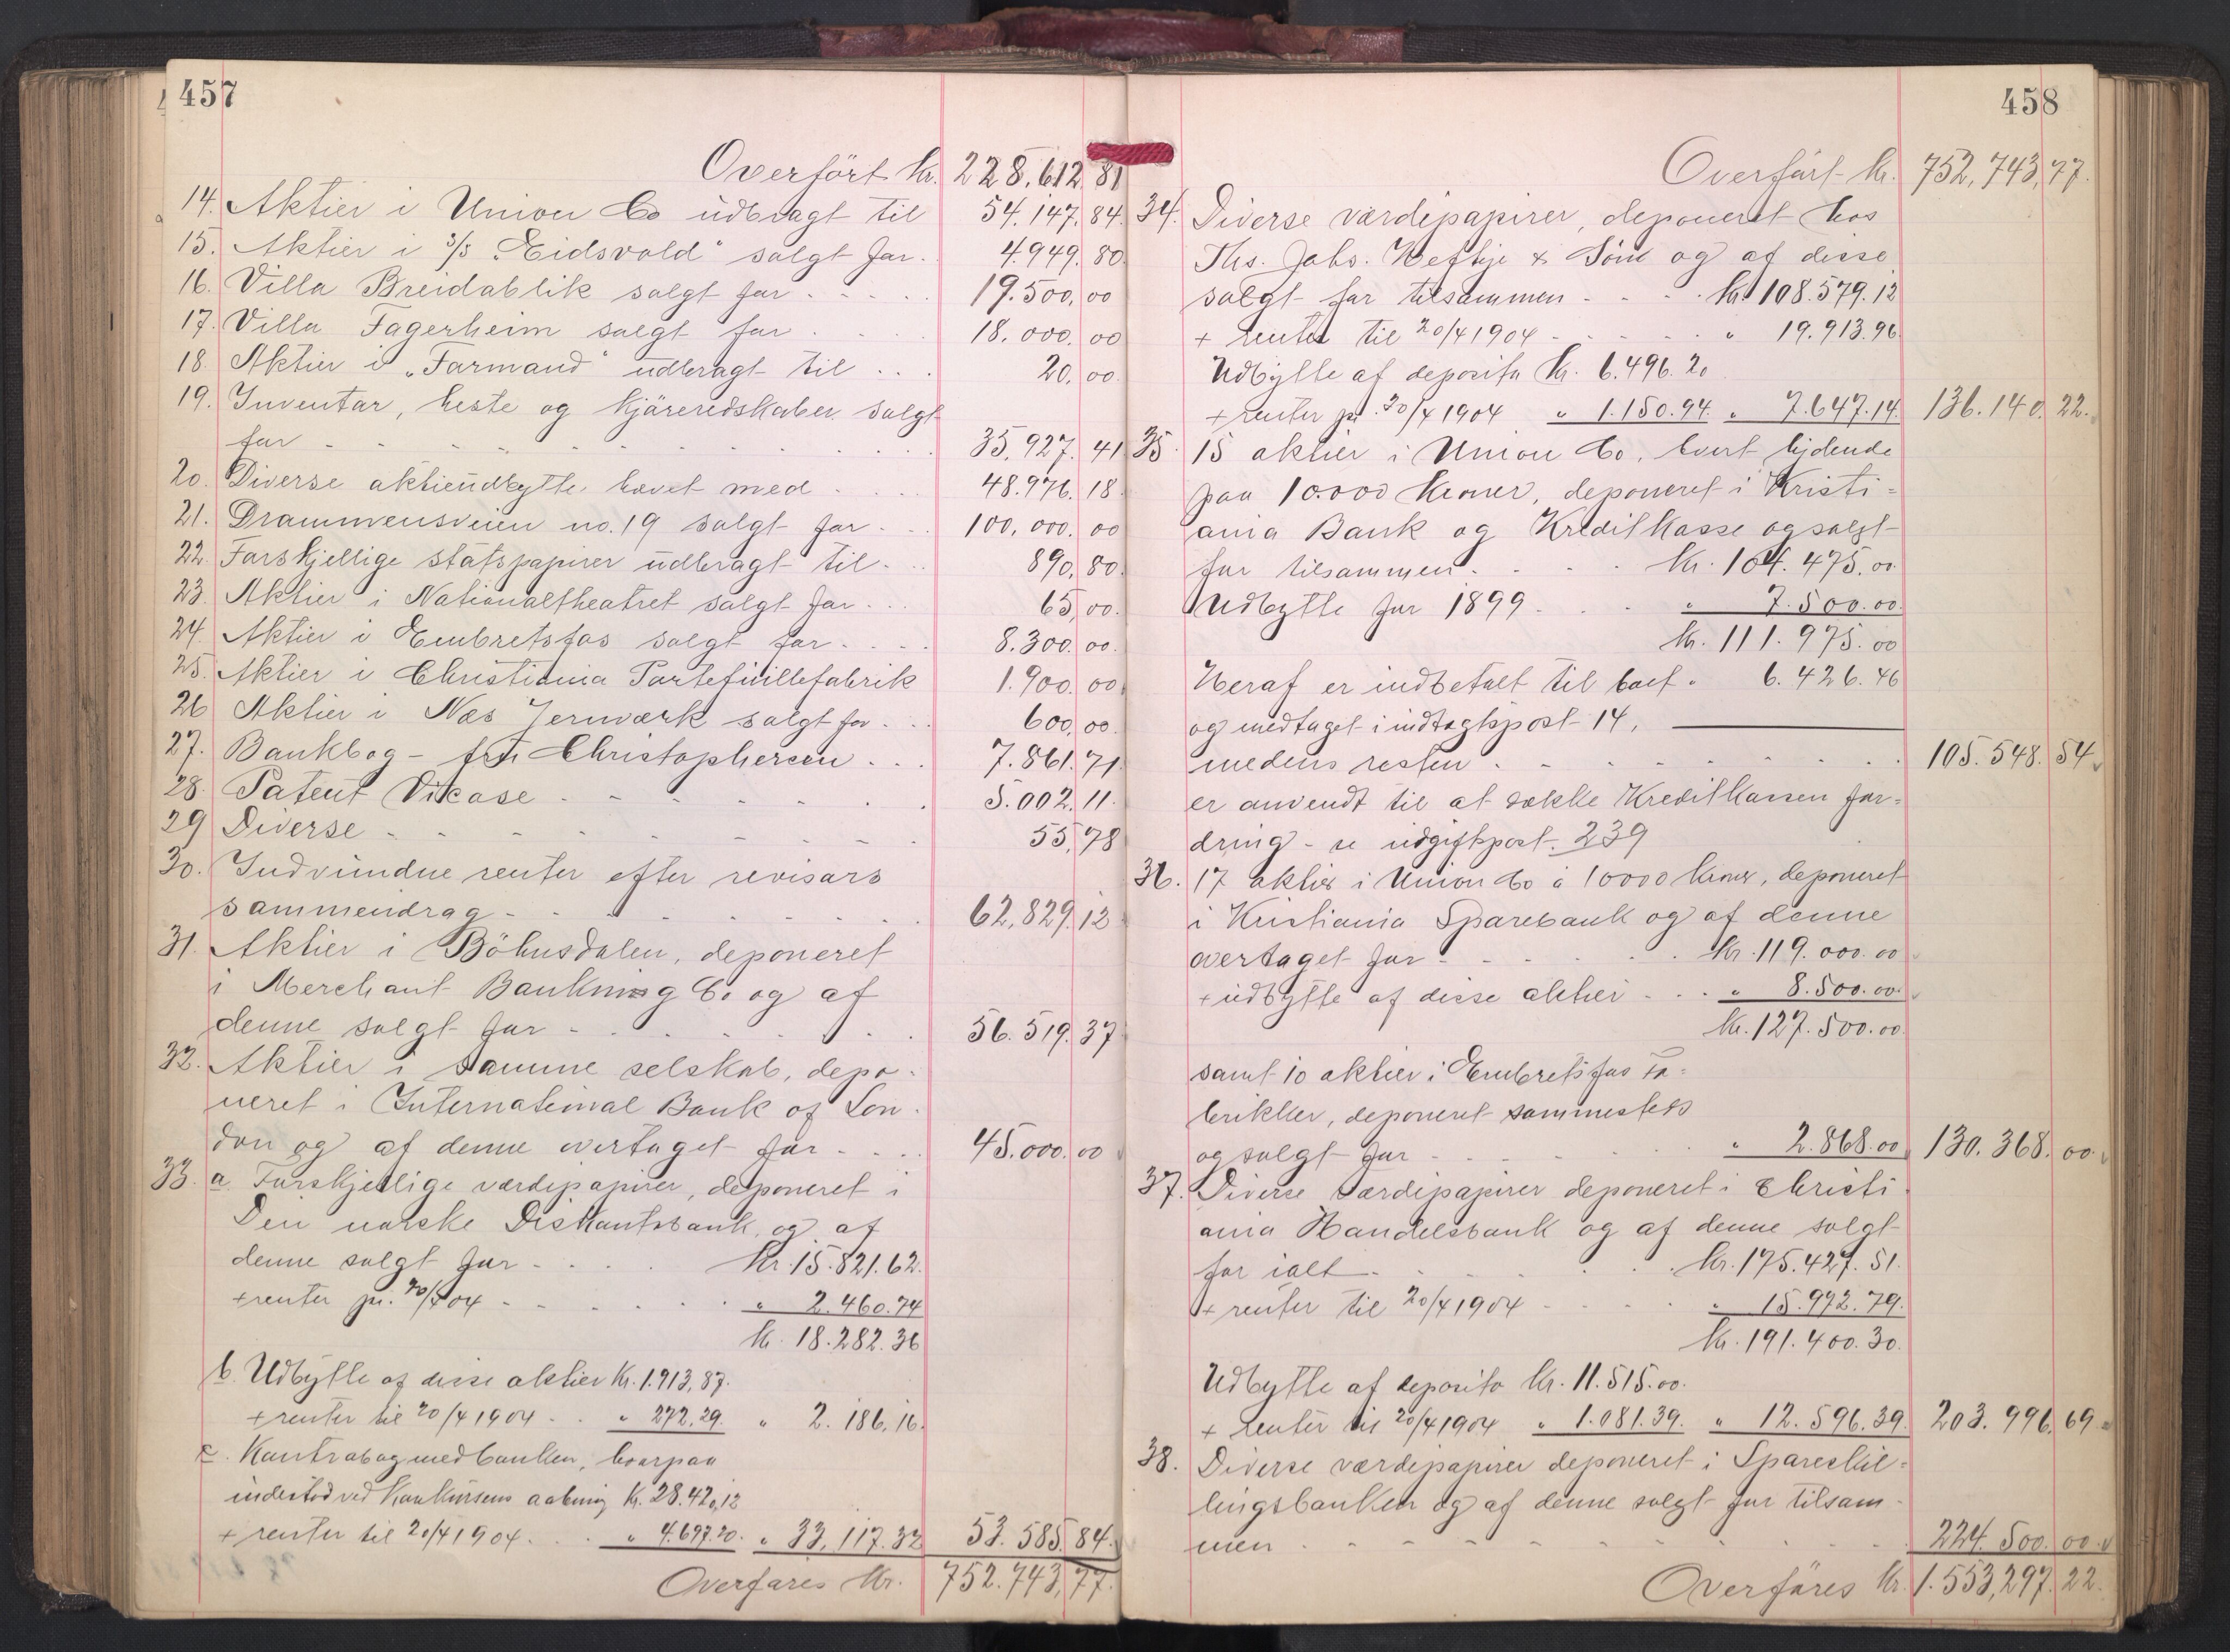 457
Overført Kr. 228.612.81
14. Aktier i Union Co udbragt til 54.147.84.
15. Aktier i S/S "Eidsvold" solgt for. 4.949.80.
16. Villa Breidablik solgt for - - - - 19.500,00
17. Villa Fagerheim solgt for . . . 18.000.00
18. Aktier i "Farmand" udbragt til . . . 20.00.
19. Inventar, heste og kjøreredskaber solgt
for - - - - - - - - 35.927.41
20. Diverse aktieudbytte hævet med . . . 48.976.18
21. Drammensveien no. 19 solgt for - . . 100.000.00
22. Forskjellige statspapirer udbragt til . . . 890,80.
23. Aktier i Nationaltheatret solgt for . . . 65,00.
24. Aktier i Embretsfos solgt for . . . . 8.300.00.
25. Aktier i Christiania Portefeuillefabrik 1.900.00.
26. Aktier i Næs Jernværk solgt for . . . 600,00.
27. Bankbog - frk Christophersen . . . 7.861.71.
28. Patent Vicose - - - - - - 5.002.11.
29 Diverse - - - - - - - 55,78
30. Indvundne renter efter revisors
sammendrag - - - - - - 62,829.12
31. Aktier i Böhnsdalen, deponeret
i Merchant Banking Co og af
denne solgt for - - - - - 56.519.37
32. Aktier i samme selskab, depo-
neret i International Bank of Lon-
don og af denne overtaget for - . . . 45.000.00
33. a. Forskjellige værdipapirer, deponeret i
Den norske Diskontobank og af
denne solgt for - - - - Kr. 15.821.62.
+ renter pr. 20/4 04 - - - - - - " 2.460.74
Kr. 18.282.36
b. Udbytte af disse aktier Kr. 1.913,87.
+ renter til 20/4 1904 - . " 272.29. " 2.186,16.
c. Kontrabog med banken, hvorpaa
indestod ved konkursens aabning Kr. 28.420,12
+ renter til 20/4 1904 . . . " 4.697.20. " 33,117.32 53.585.84.
Overføres Kr. 752.743,77.
458
Overført Kr. 752,743,77.
34. Diverse værdipapirer, deponeret hos
Ths. Johs. Heftye & Søn og af disse
solgt for tilsammen - - - - Kr. 108.579.12
+ renter til 20/4 1904 - - - - - " 19.913.96.
Udbytte af deposita Kr. 6.496.20
+ renter pr. 20/4 1904 " 1.150.94. " 7.647.14. 136.140.22.
35. 15 aktier i Union Co, hvert lydende
paa 10.000 Kroner, deponeret i Kristi-
ania Bank og Kreditkasse og solgt
for tilsammen - - - - Kr. 104.475.00
Udbytte for 1899 - . . . " 7.500.00.
Kr. 111.975.00
Heraf er indbetalt til boet " 6.426.46
og medtaget i indtægtspost 14,
medens resten - - - - - - - 105.548.54
er anvendt til at dække Kreditkassen for-
dring - se udgiftspost. 239
36. 17 aktier i Union Co á 10000 Kroner, deponeret
i Kristiania Sparebank og af denne
overtaget for - - - - - - Kr. 119.000.00
+ udbytte af disse aktier - . . " 8.500.00.
Kr. 127.500.00.
samt 10 aktier i Embretsfos Fa-
brikker, deponeret sammesteds
og solgt for - - - - - " 2.868.00 130.368.00.
37. Diverse værdipapirer deponeret i Christi-
ania Handelsbank og af denne solgt
for ialt - - - - - - Kr. 175.427.51.
+ renter til 20/4 1904 - - - - " 15.972.79.
Kr. 191.400.30.
Udbytte af deposita Kr. 11.515.00.
+ renter til 20/4 1904 " 1.081.39. " 12.596.39. 203.996.69
38. Diverse værdipapirer deponeret i Spareskil-
lingsbanken og af denne solgt for tilsam-
men - - - - - - - - 224.500.00.
Overføres Kr. 1.553,297.22.